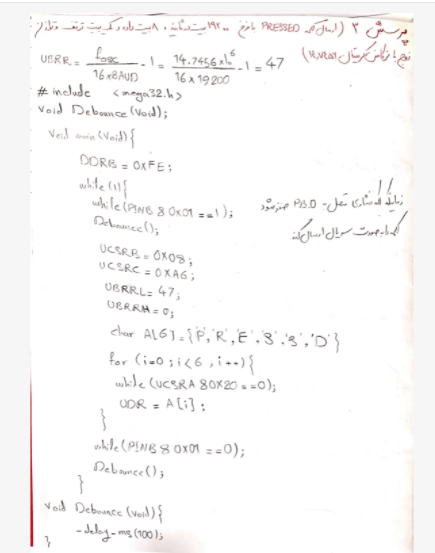 پرسش 3 (ارسال کلمه PRESSED با نرخ 19200 بیت در ثانیه، 8 بیت داده و یک بیت توقف و توازن
زوج با فرکانس کریستال
UBRR = fosc / 16xBAUD - 1 = 14.7456x10^6 / 16 x 19200 - 1 = 47
# include <mega32.h>
Void Debounce (Void);
Void main (Void) {
DDRB = 0XFE;
while (1) {
while (PINB & 0x01 == 1);
زمانیکه کلید فشاری متصل PB.0 صفر شود
Debounce();
کلمه به صورت سریال ارسال کند
UCSRB = 0X08;
UCSRC = 0XA6;
UBRRL = 47;
UBRRH = 0;
char A[6] = {'P','R','E','S','S','D'}
for (i=0 ; i<6 ; i++) {
while (UCSRA & 0X20 == 0);
UDR = A[i] ;
}
while (PINB & 0X01 == 0);
Debounce();
}
Void Debounce (Void) {
-delay-ms(100);
}